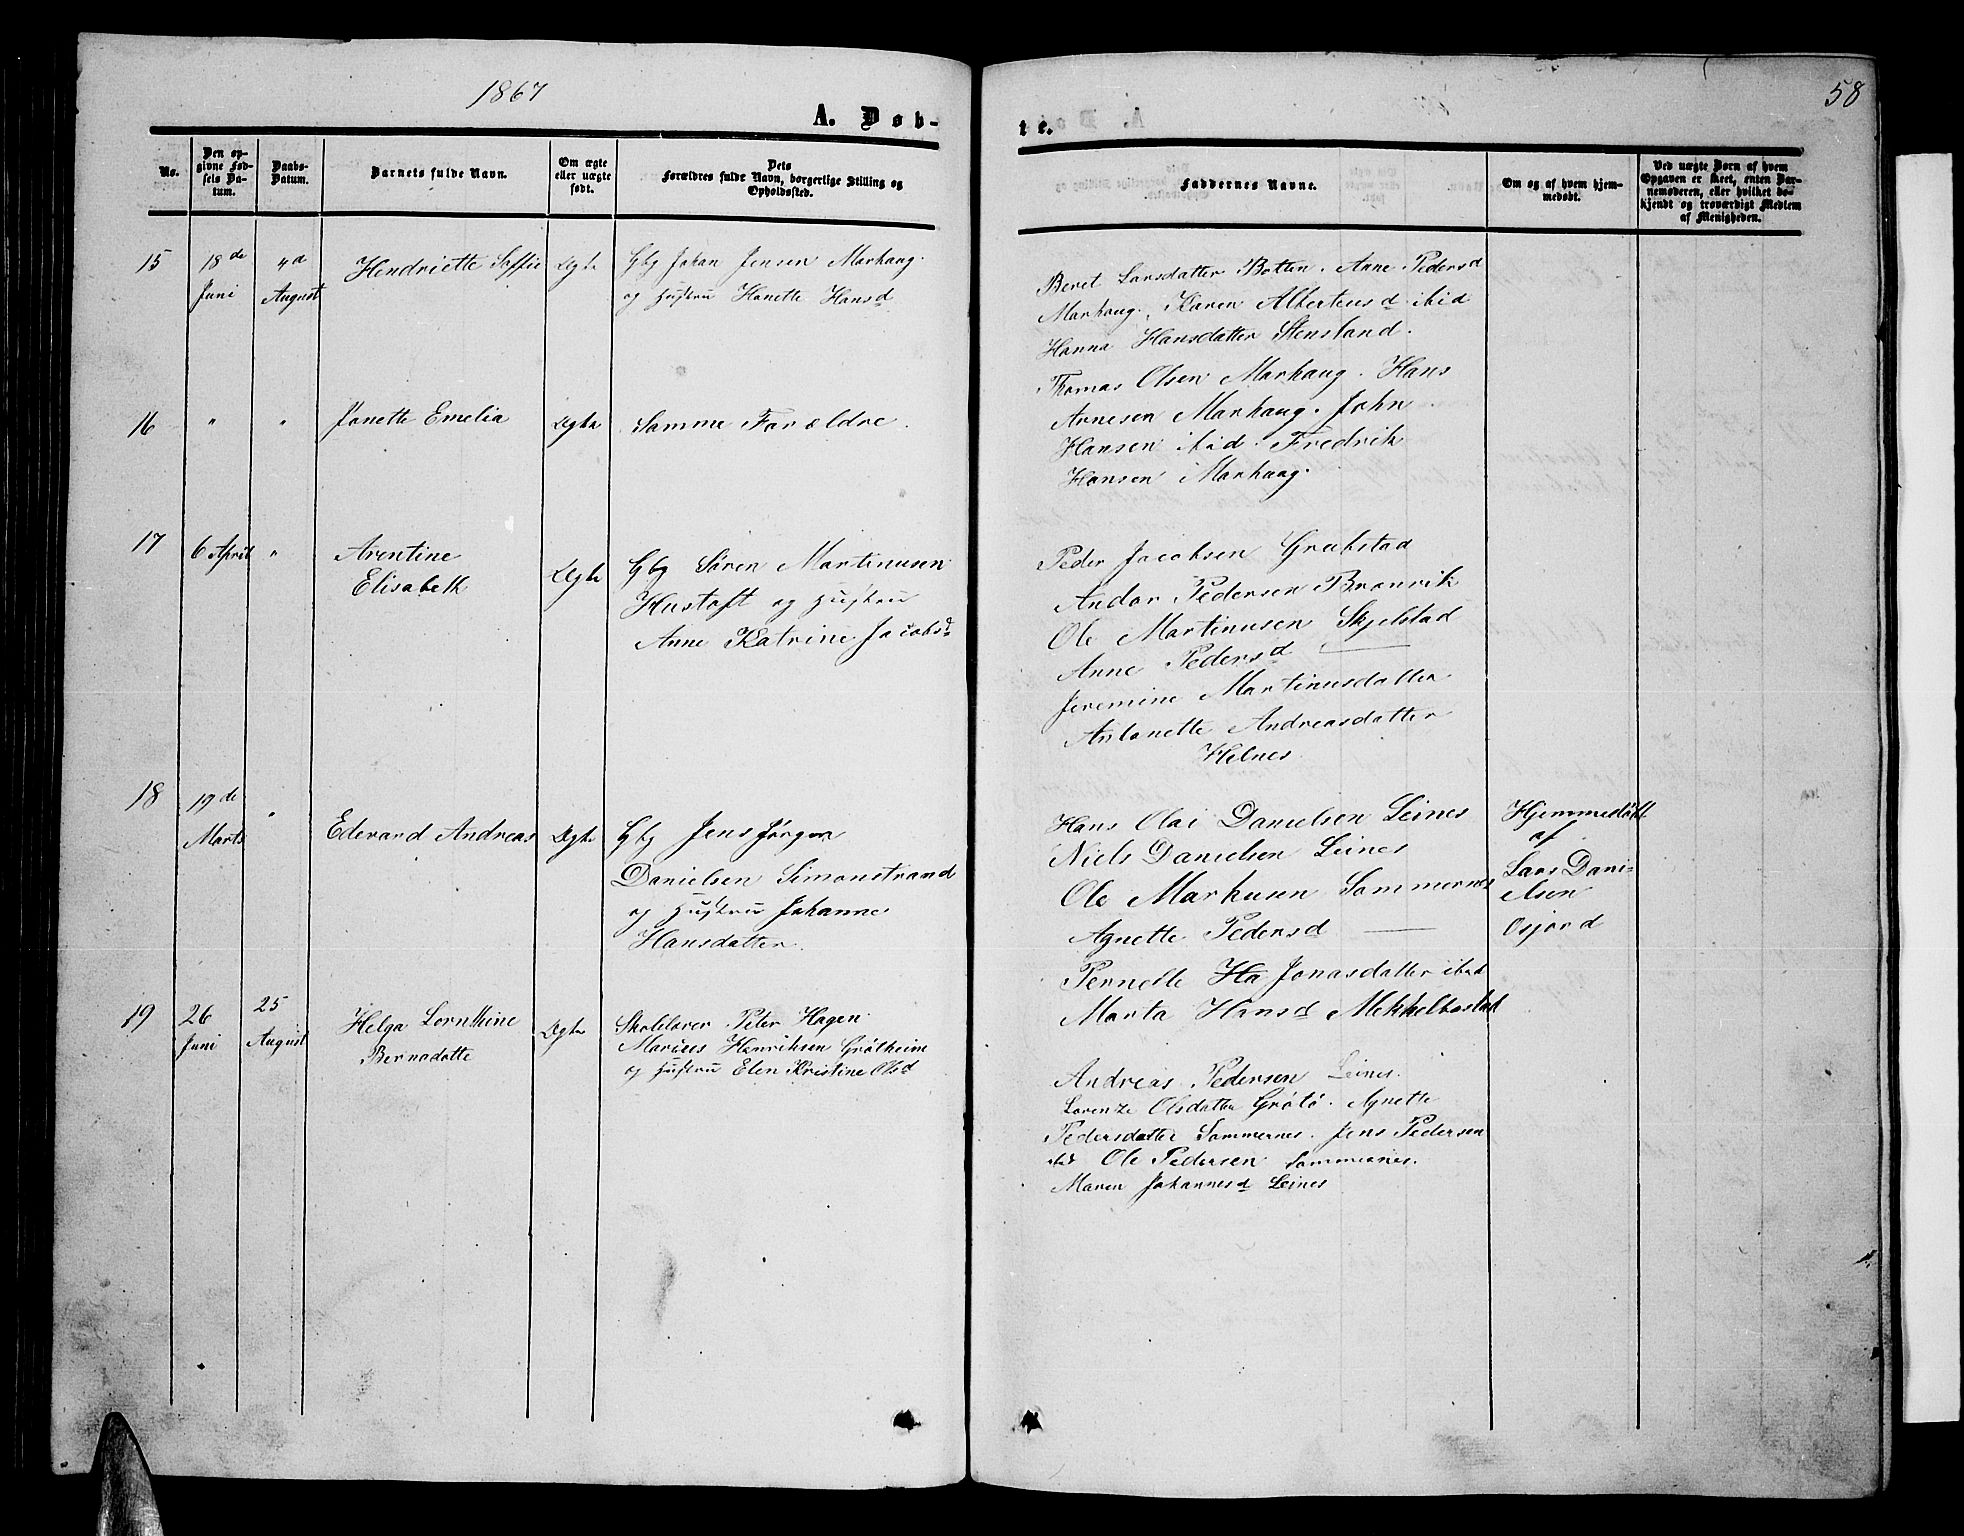 1867
58
A. Døb-
te.
No.
Den op-
givne Fød-
sels Da-
tum.
Daabs-
Datum.
Barnets fulde Navn.
Om ægte
eller uægte
født.
Dets
Forældres fulde Navn, borgerlige Stilling og
Opholdssted.
Faddernes Navne.
Om og af hvem hjem-
medøbt.
Ved uægte Børn af hvem
Opgaven er skeet, enten Bar-
nemoderen, eller hvilket be-
kjendt og troværdigt Medlem
af Menigheden.
15
18de
Juni
4de
August
Hendriette Soffie
Ægte
Gbg Johan Jensen Marhaug.
og Hustru Hanette Hansd
Beret Larsdatter Botten. Anne Pedersd
Marhaug. Karen Alberteusd ibid
Hanna Hansdatter Stensland.
Thomas Olsen Marhaug. Hans
Arnesen Marhaug. John
Hansen ibid. Fredrik
Hansen Marhaug.
16
"
"
Janette Emelia
Ægte
Samme Forældre.
17
6 April
"
Arentine
Elisabeth
Ægte
Gbg Søren Martinusen
Hustoft og Hustru
Anne Katrine Jacobsd
Peder Jacobsen Grækstad
Andor Pedersen Brænvik
Ole Martinusen Skjelstad
Anne Pedersd —
Jeremine Martinusdatter
Antonette Andreasdatter
Helnes
18
19de
Marts
"
Edevard Andreas
Ægte
Gbg Jens Jørgen
Danielsen Simonstrand
og Hustru Johanne
Hansdatter.
Hans Olai Danielsen Leines
Niels Danielsen Leines
Ole Markusen Sommernes
Agnette Pedersd —
Pernette Ha Jonasdatter ibid
Marta Hansd Mekkelbostad
Hjemmedøbt
af
Lars Dani-
elsen
Osjord
19
26
Juni
25
August
Helga Lornthine
Bernadotte
Ægte
Skolelærer Peter Hagen
Marius Henriksen Grøtheim
og Hustru Elen Kristine Olsd
Andreas Pedersen Leines.
Lorenze Olsdatter Grøtø. Agnette
Pedersdatter Sommernes. Jens Pedersen
ibid Ole Pedersen Sommernes.
Maren Johannesd Leines